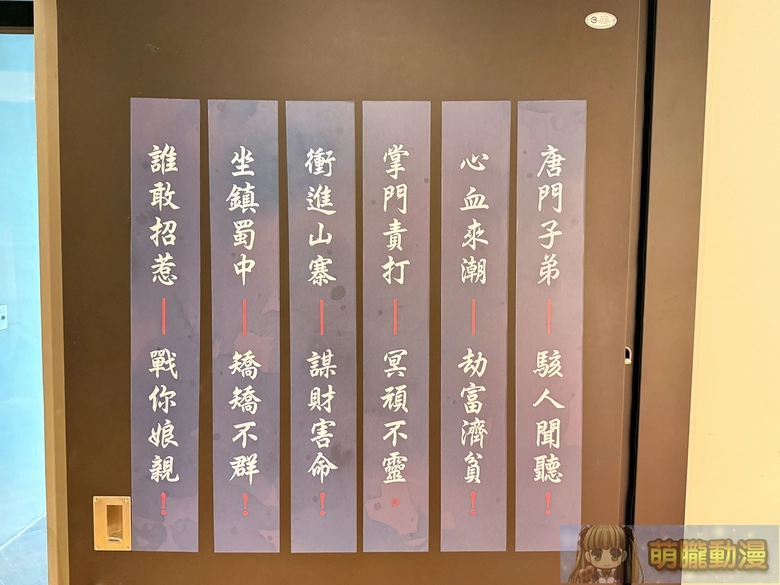 唐門子弟—駭人聞聽！
心血來潮—劫富濟貧！
掌門責打—冥頑不靈。
衝進山寨—謀財害命！
坐鎮蜀中—矯矯不群！
誰敢招惹—戰你娘親！
萌朧動漫